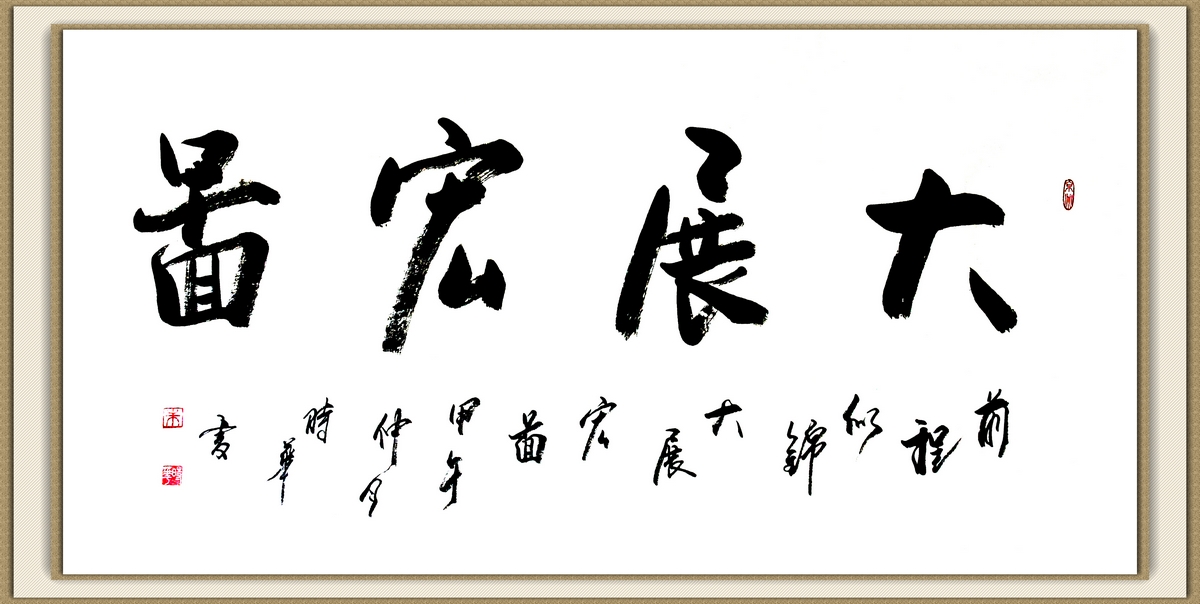 大展宏圖
前程似錦大展宏圖甲午仲月時華書